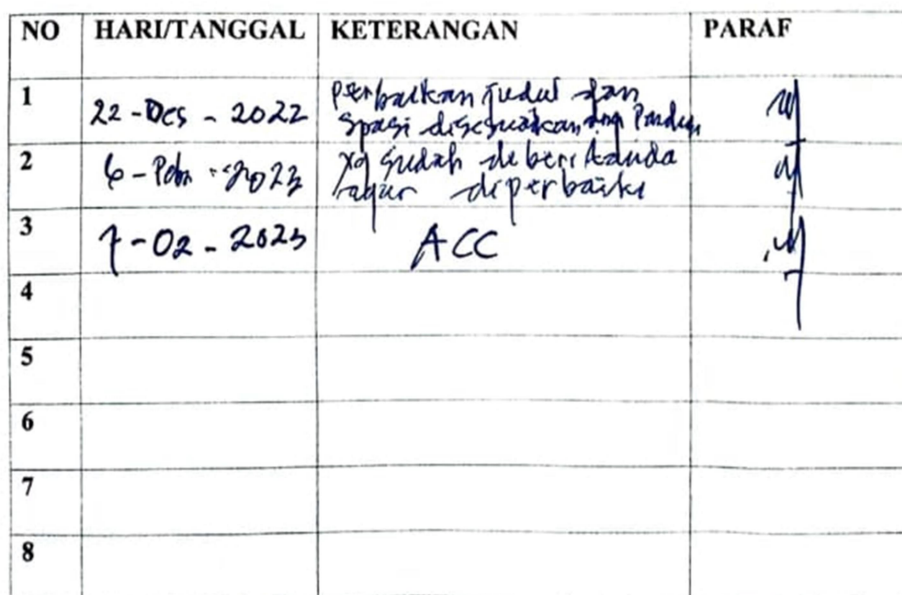 NO HARI/TANGGAL KETERANGAN PARAF
1 22-Des-2022 perbaikan judul dan
spasi disesuaikan dng
2 6-Peb-2023 yg sudah diberi tanda
agar diperbaiki
3 7-02-2023 ACC
4
5
6
7
8